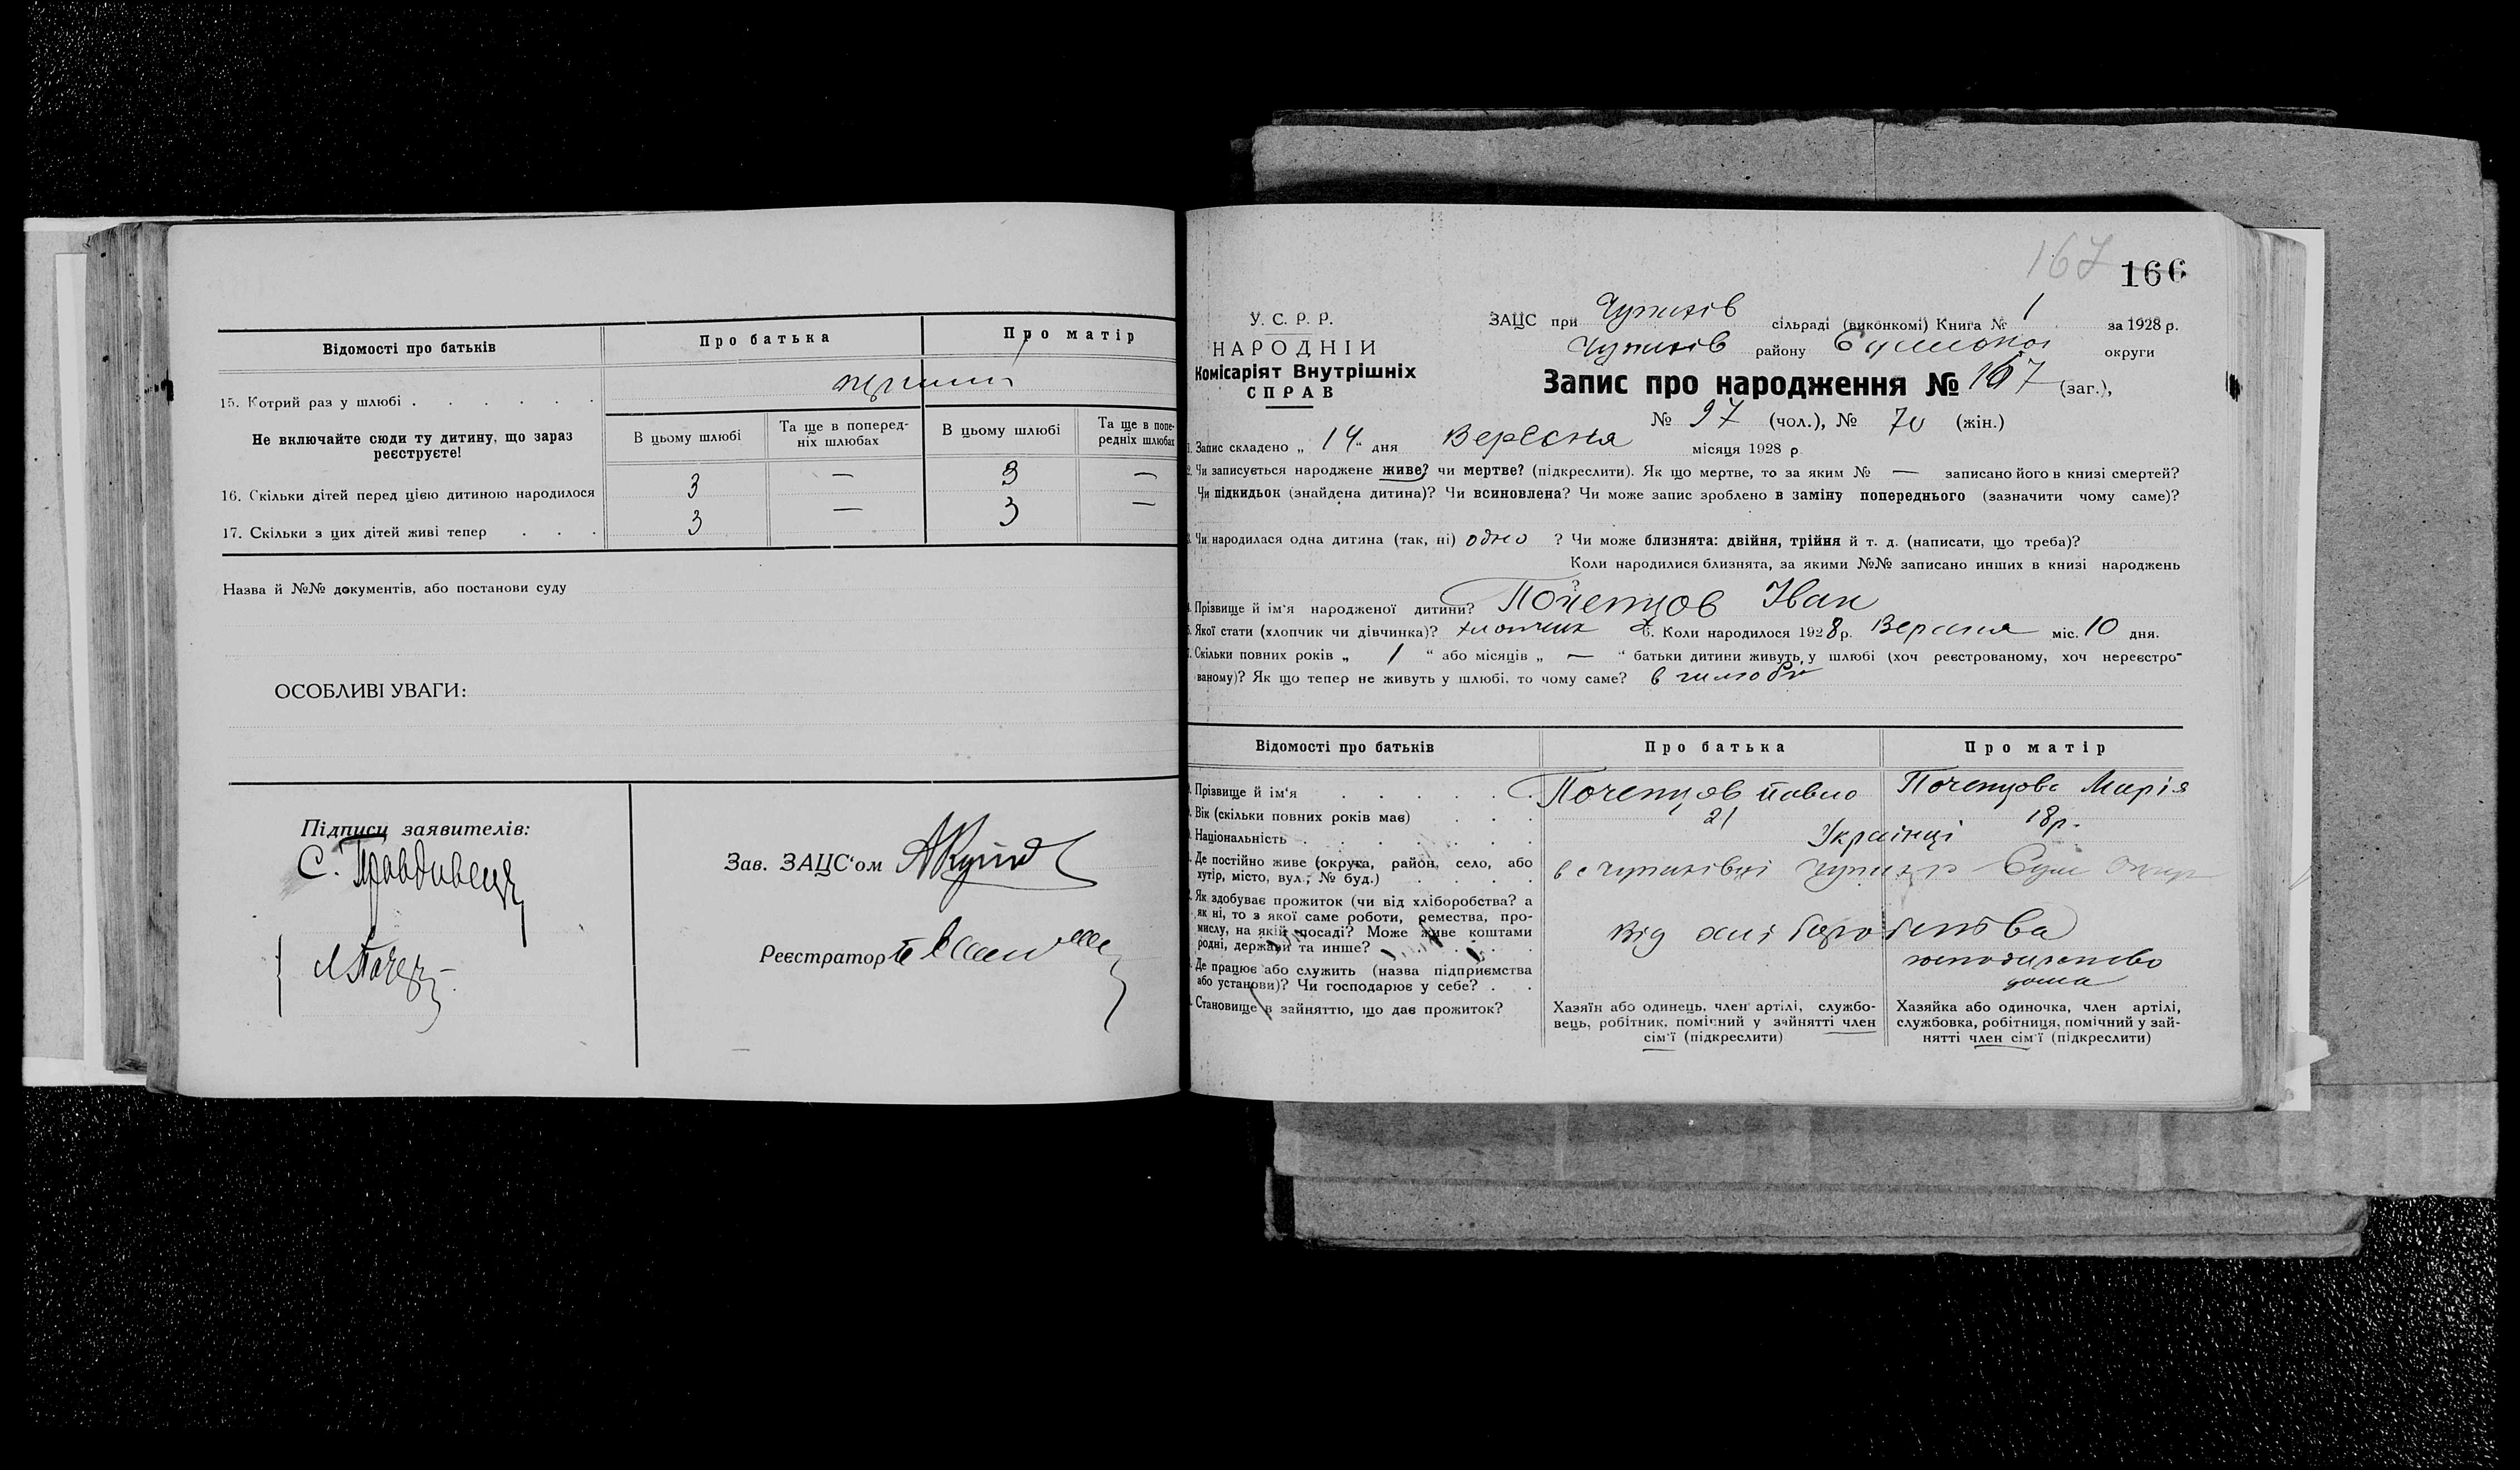 Відомості про батьків
Про батька
Про матір
15. Котрий раз у шлюбі
первий
Не включайте сюди ту дитину, що зараз реєструєте!
В цьому шлюбі
Та ще в поперед-
ніх шлюбах
В цьому шлюбі
Та ще в попе-
редніх шлюбах
16. Скільки дітей перед цією дитиною народилося 3 — 3 —
17. Скільки з цих дітей живі тепер 3 — 3 —
Назва й №№ документів, або постанови суду
ОСОБЛИВІ УВАГИ:
Підписи заявителів:
С. Правдивець
Зав. ЗАЦС'ом
Реєстратор
167
166
У. С. Р. Р.
НАРОДНІЙ
Комісаріят Внутрішніх
СПРАВ
ЗАЦС при Чупахів сільраді (виконкомі) Книга № 1 за 1928 р.
Чупахів району округи
Запис про народження № 167 (заг.),
№ 97 (чол.), № 70 (жін.)
1. Запис складено „ 14 “ дня Вересня місяця 1928 р.
2. Чи записується народжене живе? чи мертве? (підкреслити). Як що мертве, то за яким № — записано його в книзі смертей?
Чи підкидьок (знайдена дитина)? Чи всиновлена? Чи може запис зроблено в заміну попереднього (зазначити чому саме)?
3. Чи народилася одна дитина (так, ні) одно ? Чи може близнята: двійня, трійня й т. д. (написати, що треба)?
Коли народилися близнята, за якими №№ записано инших в книзі народжень
?
4. Прізвище й ім'я народженої дитини? Почепцов Іван
5. Якої стати (хлопчик чи дівчинка)? хлопчик 6. Коли народилося 1928 р. Вересня міс. 10 дня.
7. Скільки повних років „ 1 “ або місяців „ — “ батьки дитини живуть у шлюбі (хоч реєстрованому, хоч нереєстро-
ваному)? Як що тепер не живуть у шлюбі, то чому саме? в шлюбі
Відомості про батьків
Про батька
Про матір
Прізвище й ім'я
Почепцов Павло
Почепцова Марія
Вік (скільки повних років має)
21
18 р.
Національність
Українці
Де постійно живе (округа, район, село, або
хутір, місто, вул., № буд.)
в с Чупахівці
Як здобуває прожиток (чи від хліборобства? а
як ні, то з якої саме роботи, ремества, про-
мислу, на якій посаді? Може живе коштами
родні, держави та инше?
Від хліборобства
Де працює або служить (назва підприємства
або установи)? Чи господарює у себе?
дома
Становище в зайняттю, що дає прожиток?
Хазяїн або одинець, член артілі, службо-
вець, робітник, помічний у зайнятті член
сім'ї (підкреслити)
Хазяйка або одиночка, член артілі,
службовка, робітниця, помічний у зай-
нятті член сім'ї (підкреслити)